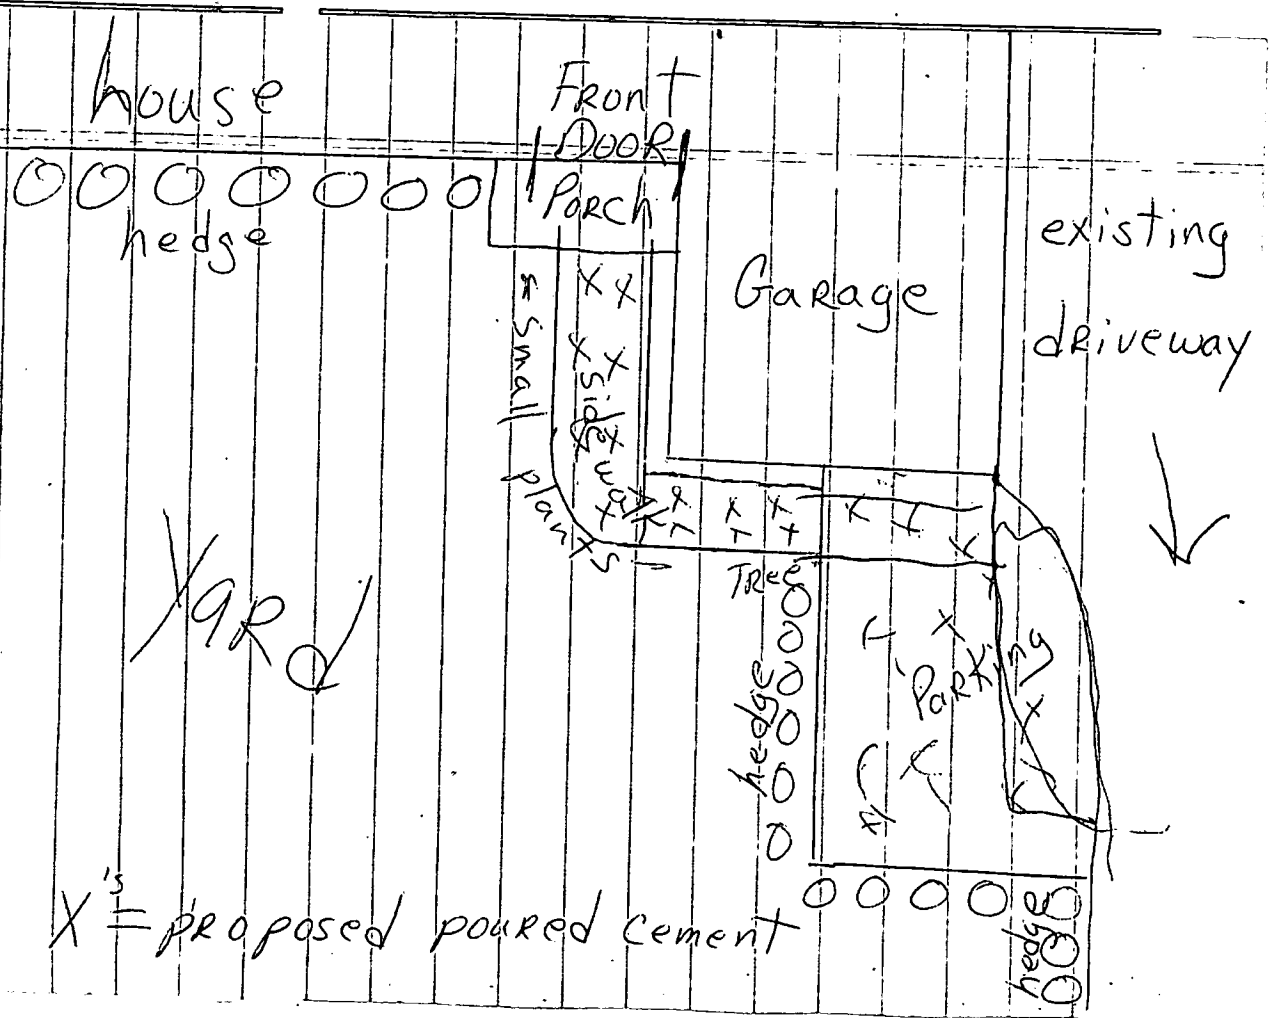 house
Front
Door
Porch
hedge
existing
driveway
Garage
= small plants
sidewalk
Yard
Tree
hedge
Parking
hedge
X's = proposed poured cement